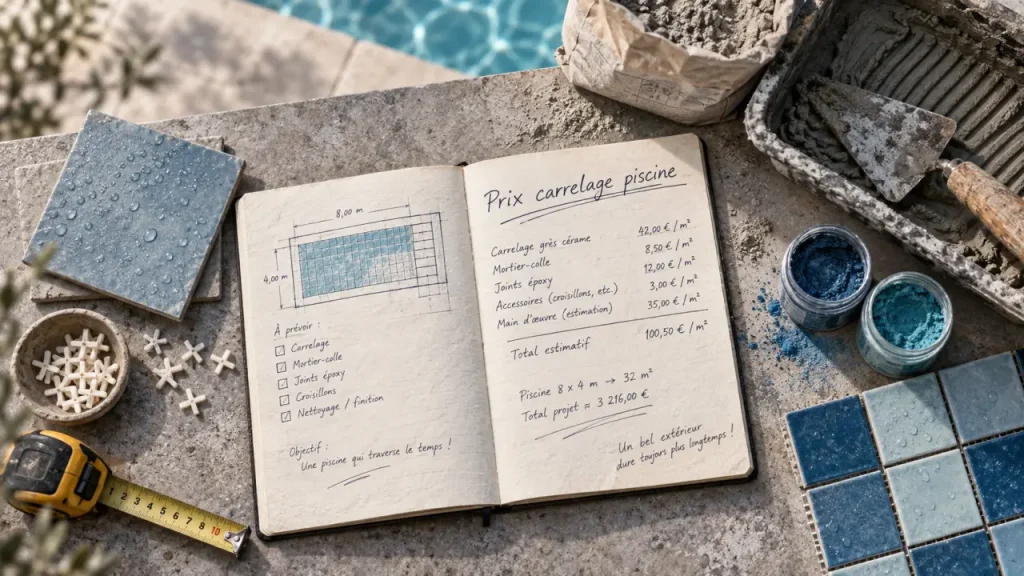 8,00 m
4,00 m
À prévoir :
☑ Carrelage
☑ Mortier-colle
☑ Joints époxy
☑ Croisillons
☑ Nettoyage / finition
Objectif :
Une piscine qui traverse le temps !
Prix carrelage piscine
Carrelage grès cérame 42,00 € / m²
Mortier-colle 8,50 € / m²
Joints époxy 12,00 € / m²
Accessoires (croisillons, etc.) 3,00 € / m²
Main d'œuvre (estimation) 35,00 € / m²
Total estimatif 100,50 € / m²
Piscine 8 x 4 m → 32 m²
Total projet ≈ 3 216,00 €
Un bel extérieur
dure toujours plus longtemps !
1 2 3 4 5 6 7 8 10